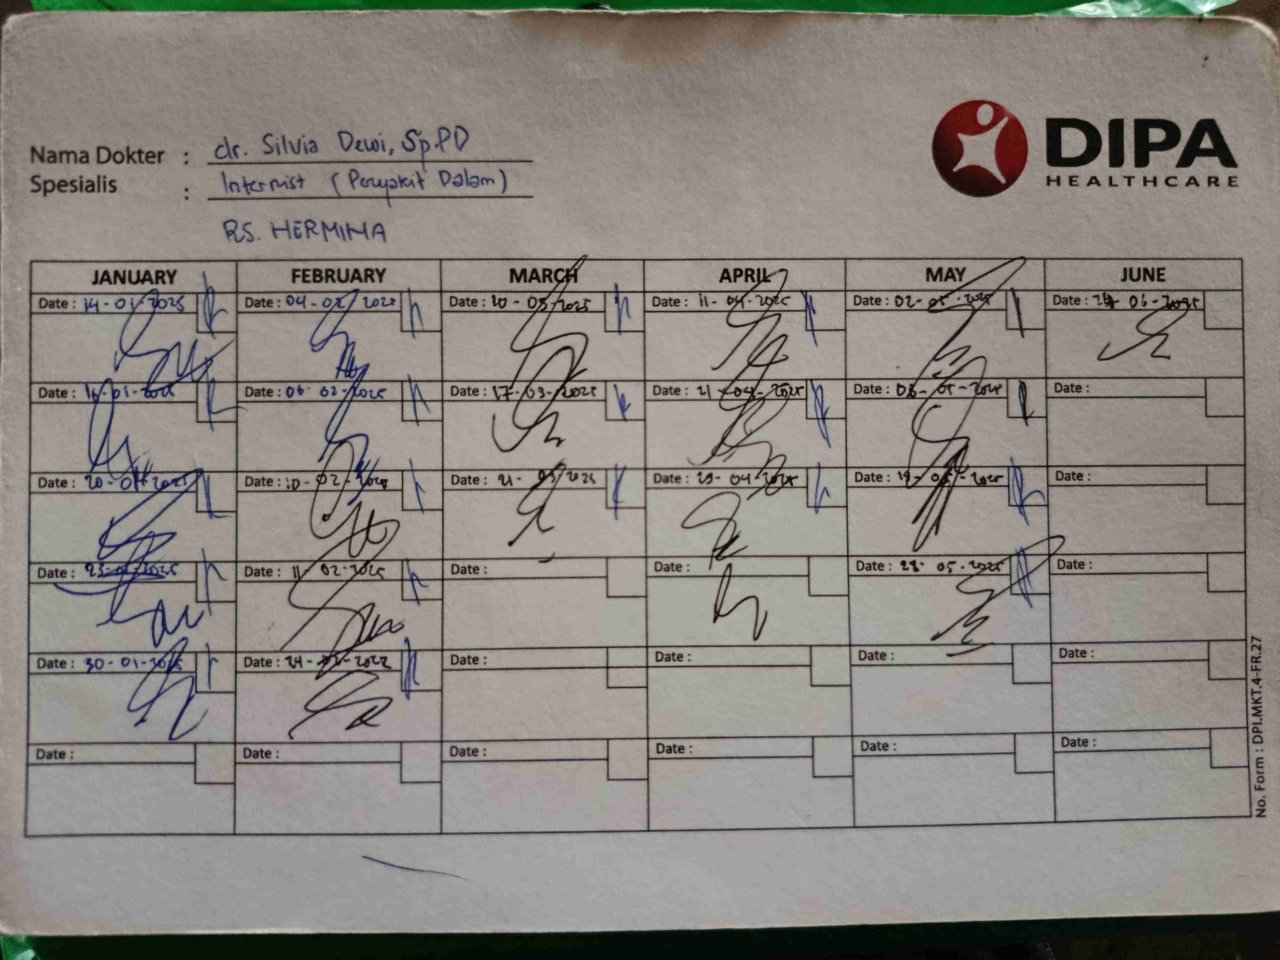 DIPA
HEALTHCARE
Nama Dokter : dr. Silvia Dewi, Sp.PD
Spesialis : Internist (Penyakit Dalam)
RS. HERMINA
JANUARY FEBRUARY MARCH APRIL MAY JUNE
Date : 14-01-2025 Date : 04-02-2025 Date : 10-03-2025 Date : 11-04-2025 Date : 02-05-2025 Date : 06-2025
Date : 16-01-2025 Date : 06-02-2025 Date : 17-03-2025 Date : 21-04-2025 Date : 05-2025 Date :
Date : 20-01-2025 Date : 10-02-2025 Date : 21-03-2025 Date : 29-04-2025 Date : 19-05-2025 Date :
Date : 23-01-2025 Date : 11-02-2025 Date : Date : Date : 28-05-2025 Date :
Date : 30-01-2025 Date : 24-02- Date : Date : Date : Date :
Date : Date : Date : Date : Date : Date :
No. Form : DPI.MKT.4-FR.27